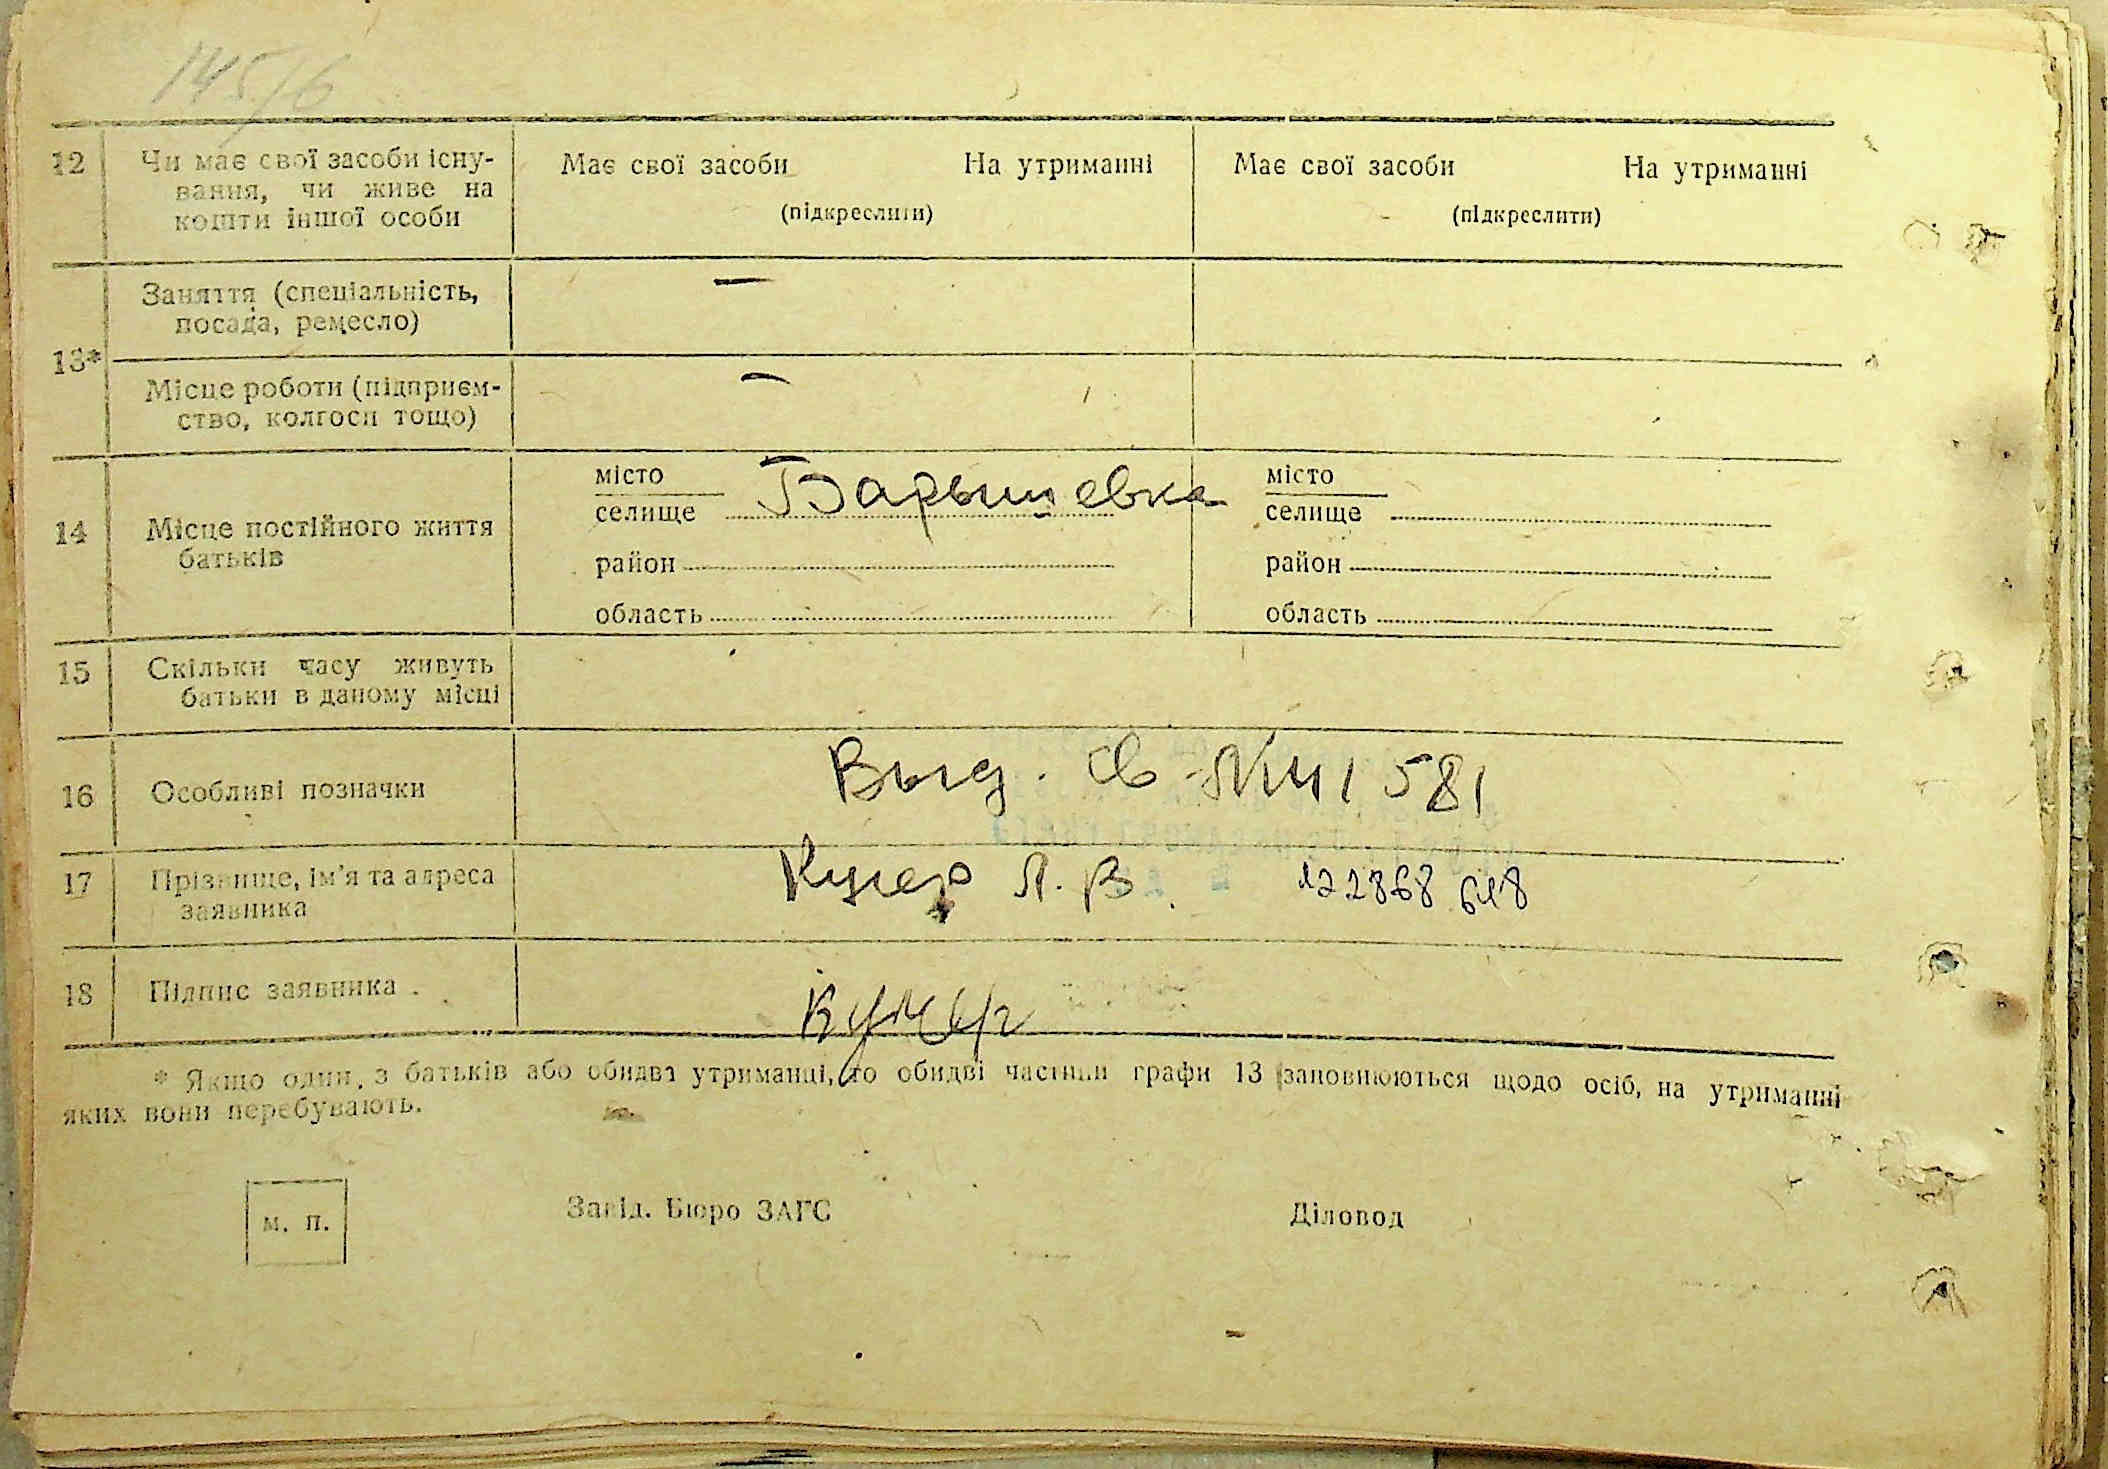 145/6
12 Чи має свої засоби існу-
вання, чи живе на
кошти іншої особи
Має свої засоби На утриманні
(підкреслити)
Має свої засоби На утриманні
(підкреслити)
13*
Заняття (спеціальність,
посада, ремесло)
—
Місце роботи (підприєм-
ство, колгосп тощо)
—
14 Місце постійного життя
батьків
місто
селище Барышевка
район
область
місто
селище
район
область
15 Скільки часу живуть
батьки в даному місці
16 Особливі позначки
Выд. св №41581
17 Прізвище, ім'я та адреса
заявника
Кучер Л. В.
18 Підпис заявника
Кучер
* Якщо один з батьків або обидва утриманці, то обидві частини графи 13 заповнюються щодо осіб, на утриманні
яких вони перебувають.
м. п.
Завід. Бюро ЗАГС
Діловод